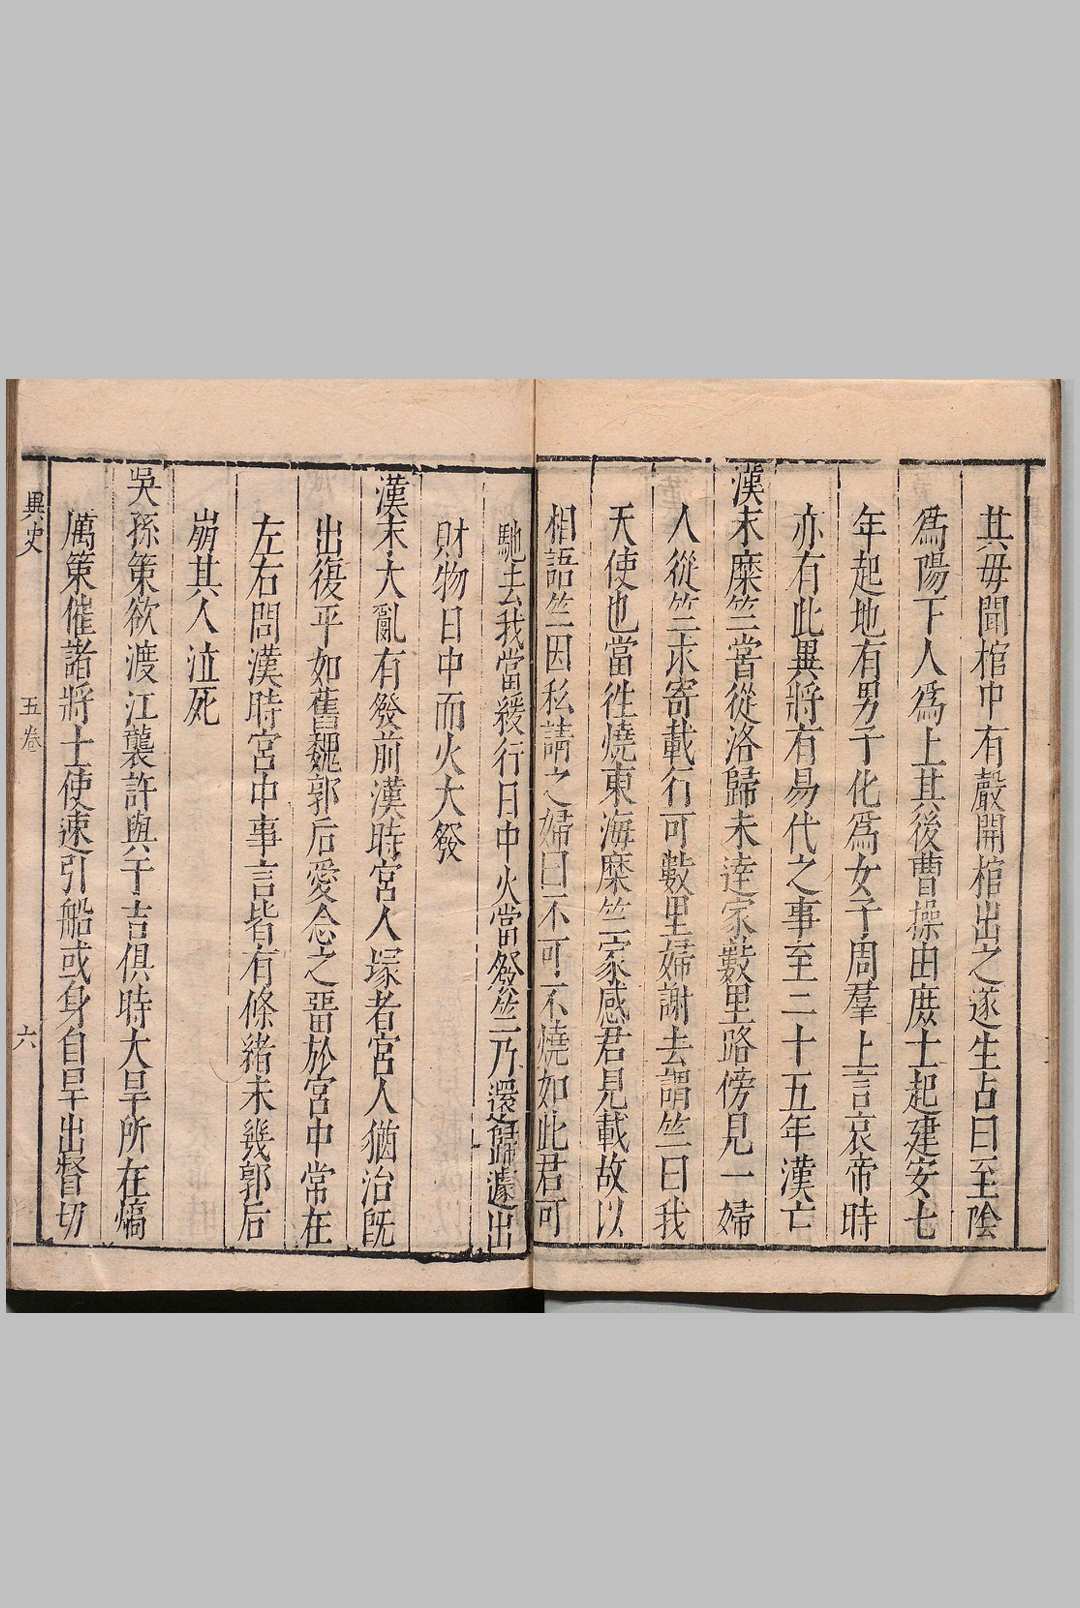 其母聞棺中有聲開棺出之遂生占曰至陰
爲陽下人爲上其後曹操由庶士起建安七
年起地有男子化爲女子周羣上言哀帝時
亦有此異將有易代之事至二十五年漢亡
漢末糜竺嘗從洛歸未達家數里路傍見一婦
人從竺求寄載行可數里婦謝去謂竺曰我
天使也當徃燒東海糜竺家感君見載故以
相語竺因私請之婦曰不可不燒如此君可
馳去我當緩行日中火當發竺乃還歸遽出
財物日中而火大發
漢末大亂有發前漢時宮人塚者宮人猶治既
出復平如舊魏郭后愛念之畱於宮中常在
左右問漢時宮中事言皆有條緒未幾郭后
崩其人泣死
吳孫策欲渡江襲許與于吉俱時大旱所在熇
厲策催諸將士使速引船或身自旱出督切
異史
五卷
六